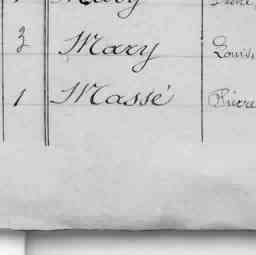 3 Mary Louis
1 Massé Pierre